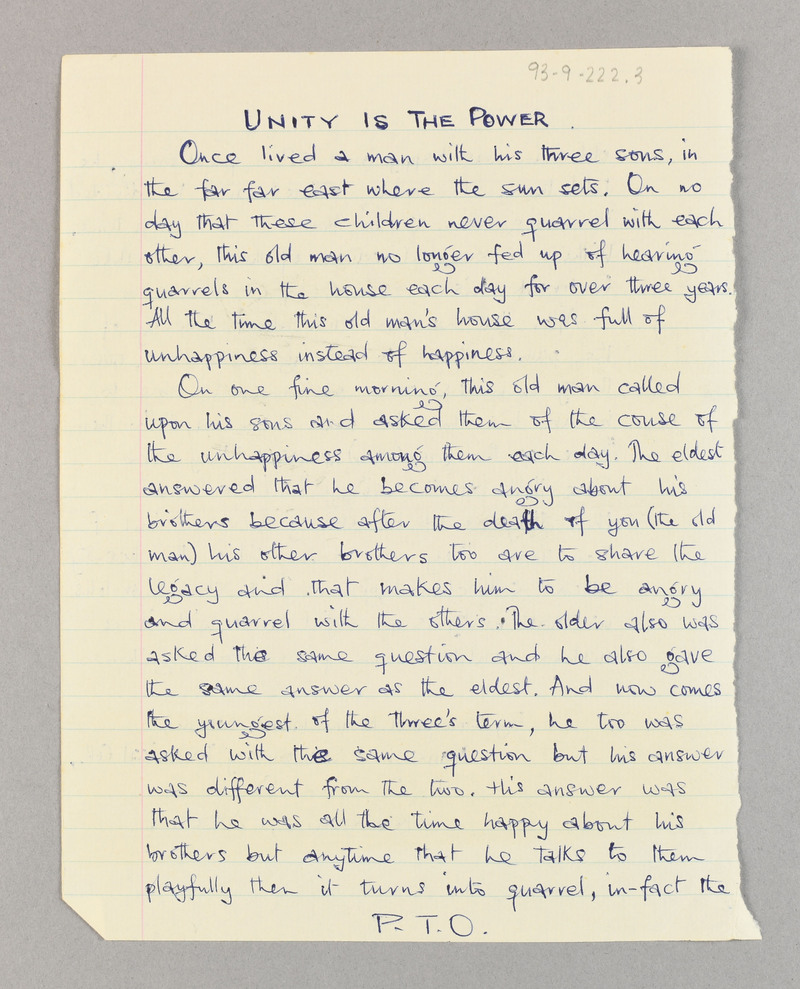 93-9-222.3
UNITY IS THE POWER.
Once lived a man with his three sons, in
the far far east where the sun sets. On no
day that these children never quarrel with each
other, this old man no longer fed up of hearing
quarrels in the house each day for over three years.
All the time this old man's house was full of
unhappiness instead of happiness.
On one fine morning, this old man called
upon his sons and asked them of the couse of
the unhappiness among them each day. The eldest
answered that he becomes angry about his
brothers because after the death of you (the old
man) his other brothers too are to share the
legacy and that makes him to be angry
and quarrel with the others. The older also was
asked the same question and he also gave
the same answer as the eldest. And now comes
the youngest of the three's term, he too was
asked with the same question but his answer
was different from the two. His answer was
that he was all the time happy about his
brothers but anytime that he talks to them
playfully then it turns into quarrel, in-fact the
P.T.O.